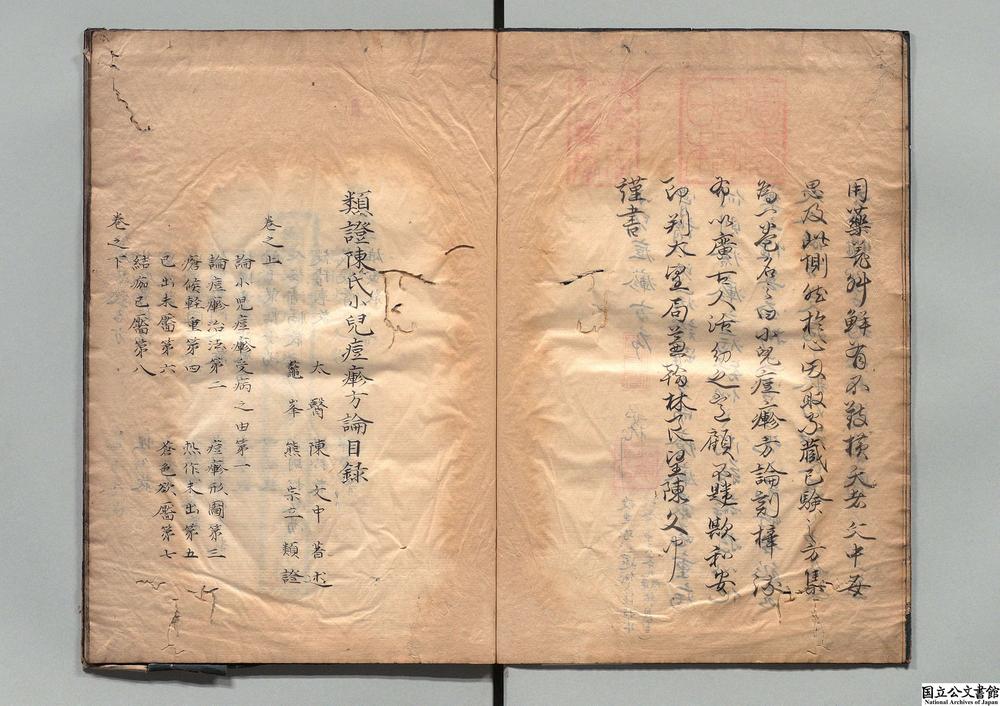 用藥乖舛鮮有不致橫夭者文中每
思及此惻然於心因取家藏已驗之方集
為一卷名之曰小兒痘瘆方論刻梓流
布以廣古人活幼之意顧不韙歟和安
郎判太醫局兼翰林良醫陳文中
謹書
類證陳氏小兒痘瘆方論目錄
太醫陳文中著述
鼇峯熊宗立類證
卷之上
論小兒痘瘆受病之由第一
論痘瘆治法第二 痘瘆形圖第三
瘡候軽重第四 热作未出第五
已出未靨第六 蒼色欲靨第七
結痂已靨第八
卷之下
国立公文書館
National Archives of Japan